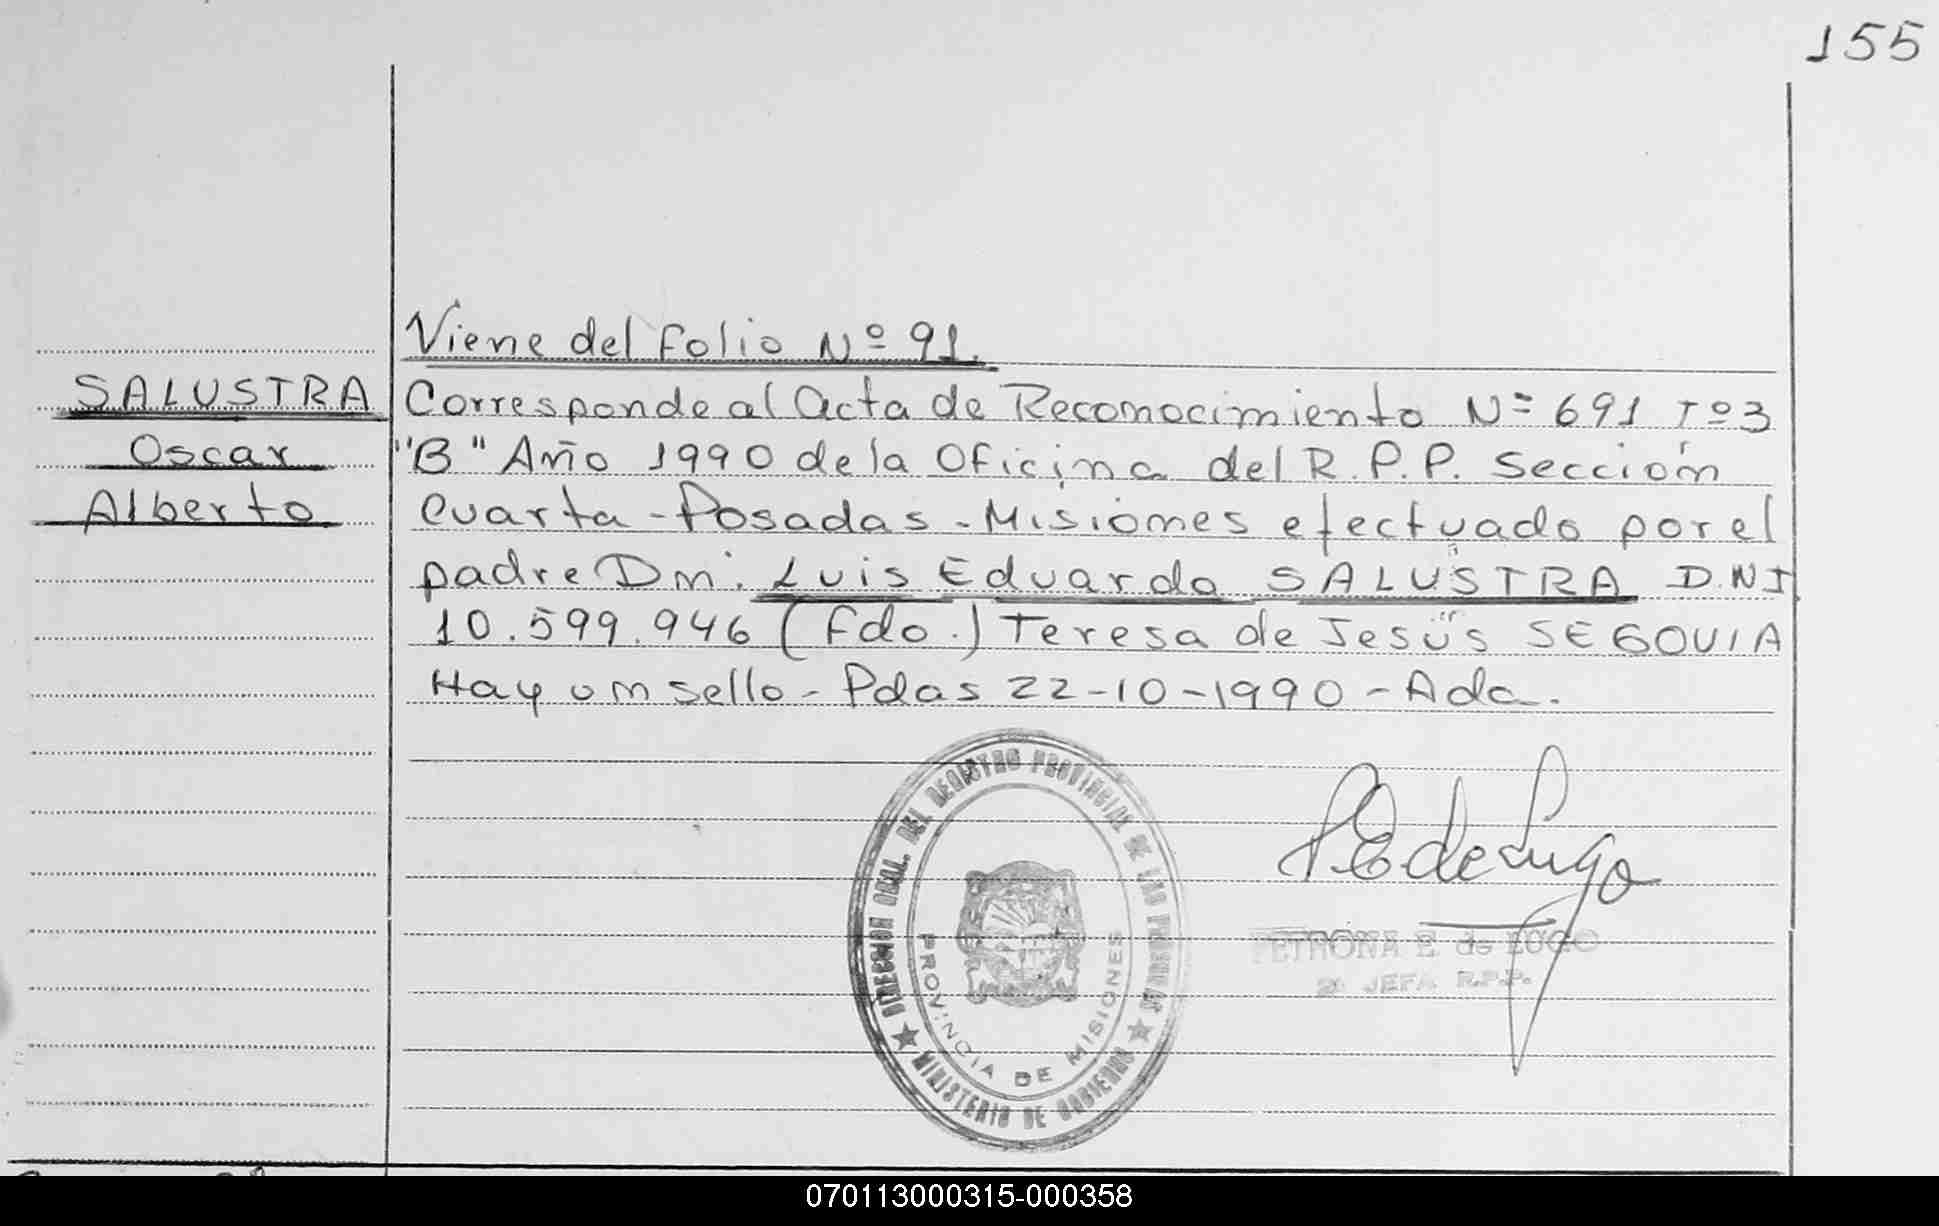 155
Viene del folio Nº 91.
SALUSTRA
Oscar
Alberto
Corresponde al Acta de Reconocimiento Nº 691 Tº 3
"B" Año 1990 de la Oficina del R.P.P. Sección
Cuarta - Posadas - Misiones efectuado por el
padre Dn. Luis Eduardo SALUSTRA D.N.I
10.599.946 (Fdo.) Teresa de Jesús SEGOVIA
Hay un sello - Pdas 22-10-1990 - Ada.
DIRECCION GRAL. DEL REGISTRO PROVINCIAL DE LAS PERSONAS
MINISTERIO DE GOBIERNO
PROVINCIA DE MISIONES
PE de Lugo
PETRONA E. de LUGO
2ª JEFA R.P.P.
070113000315-000358